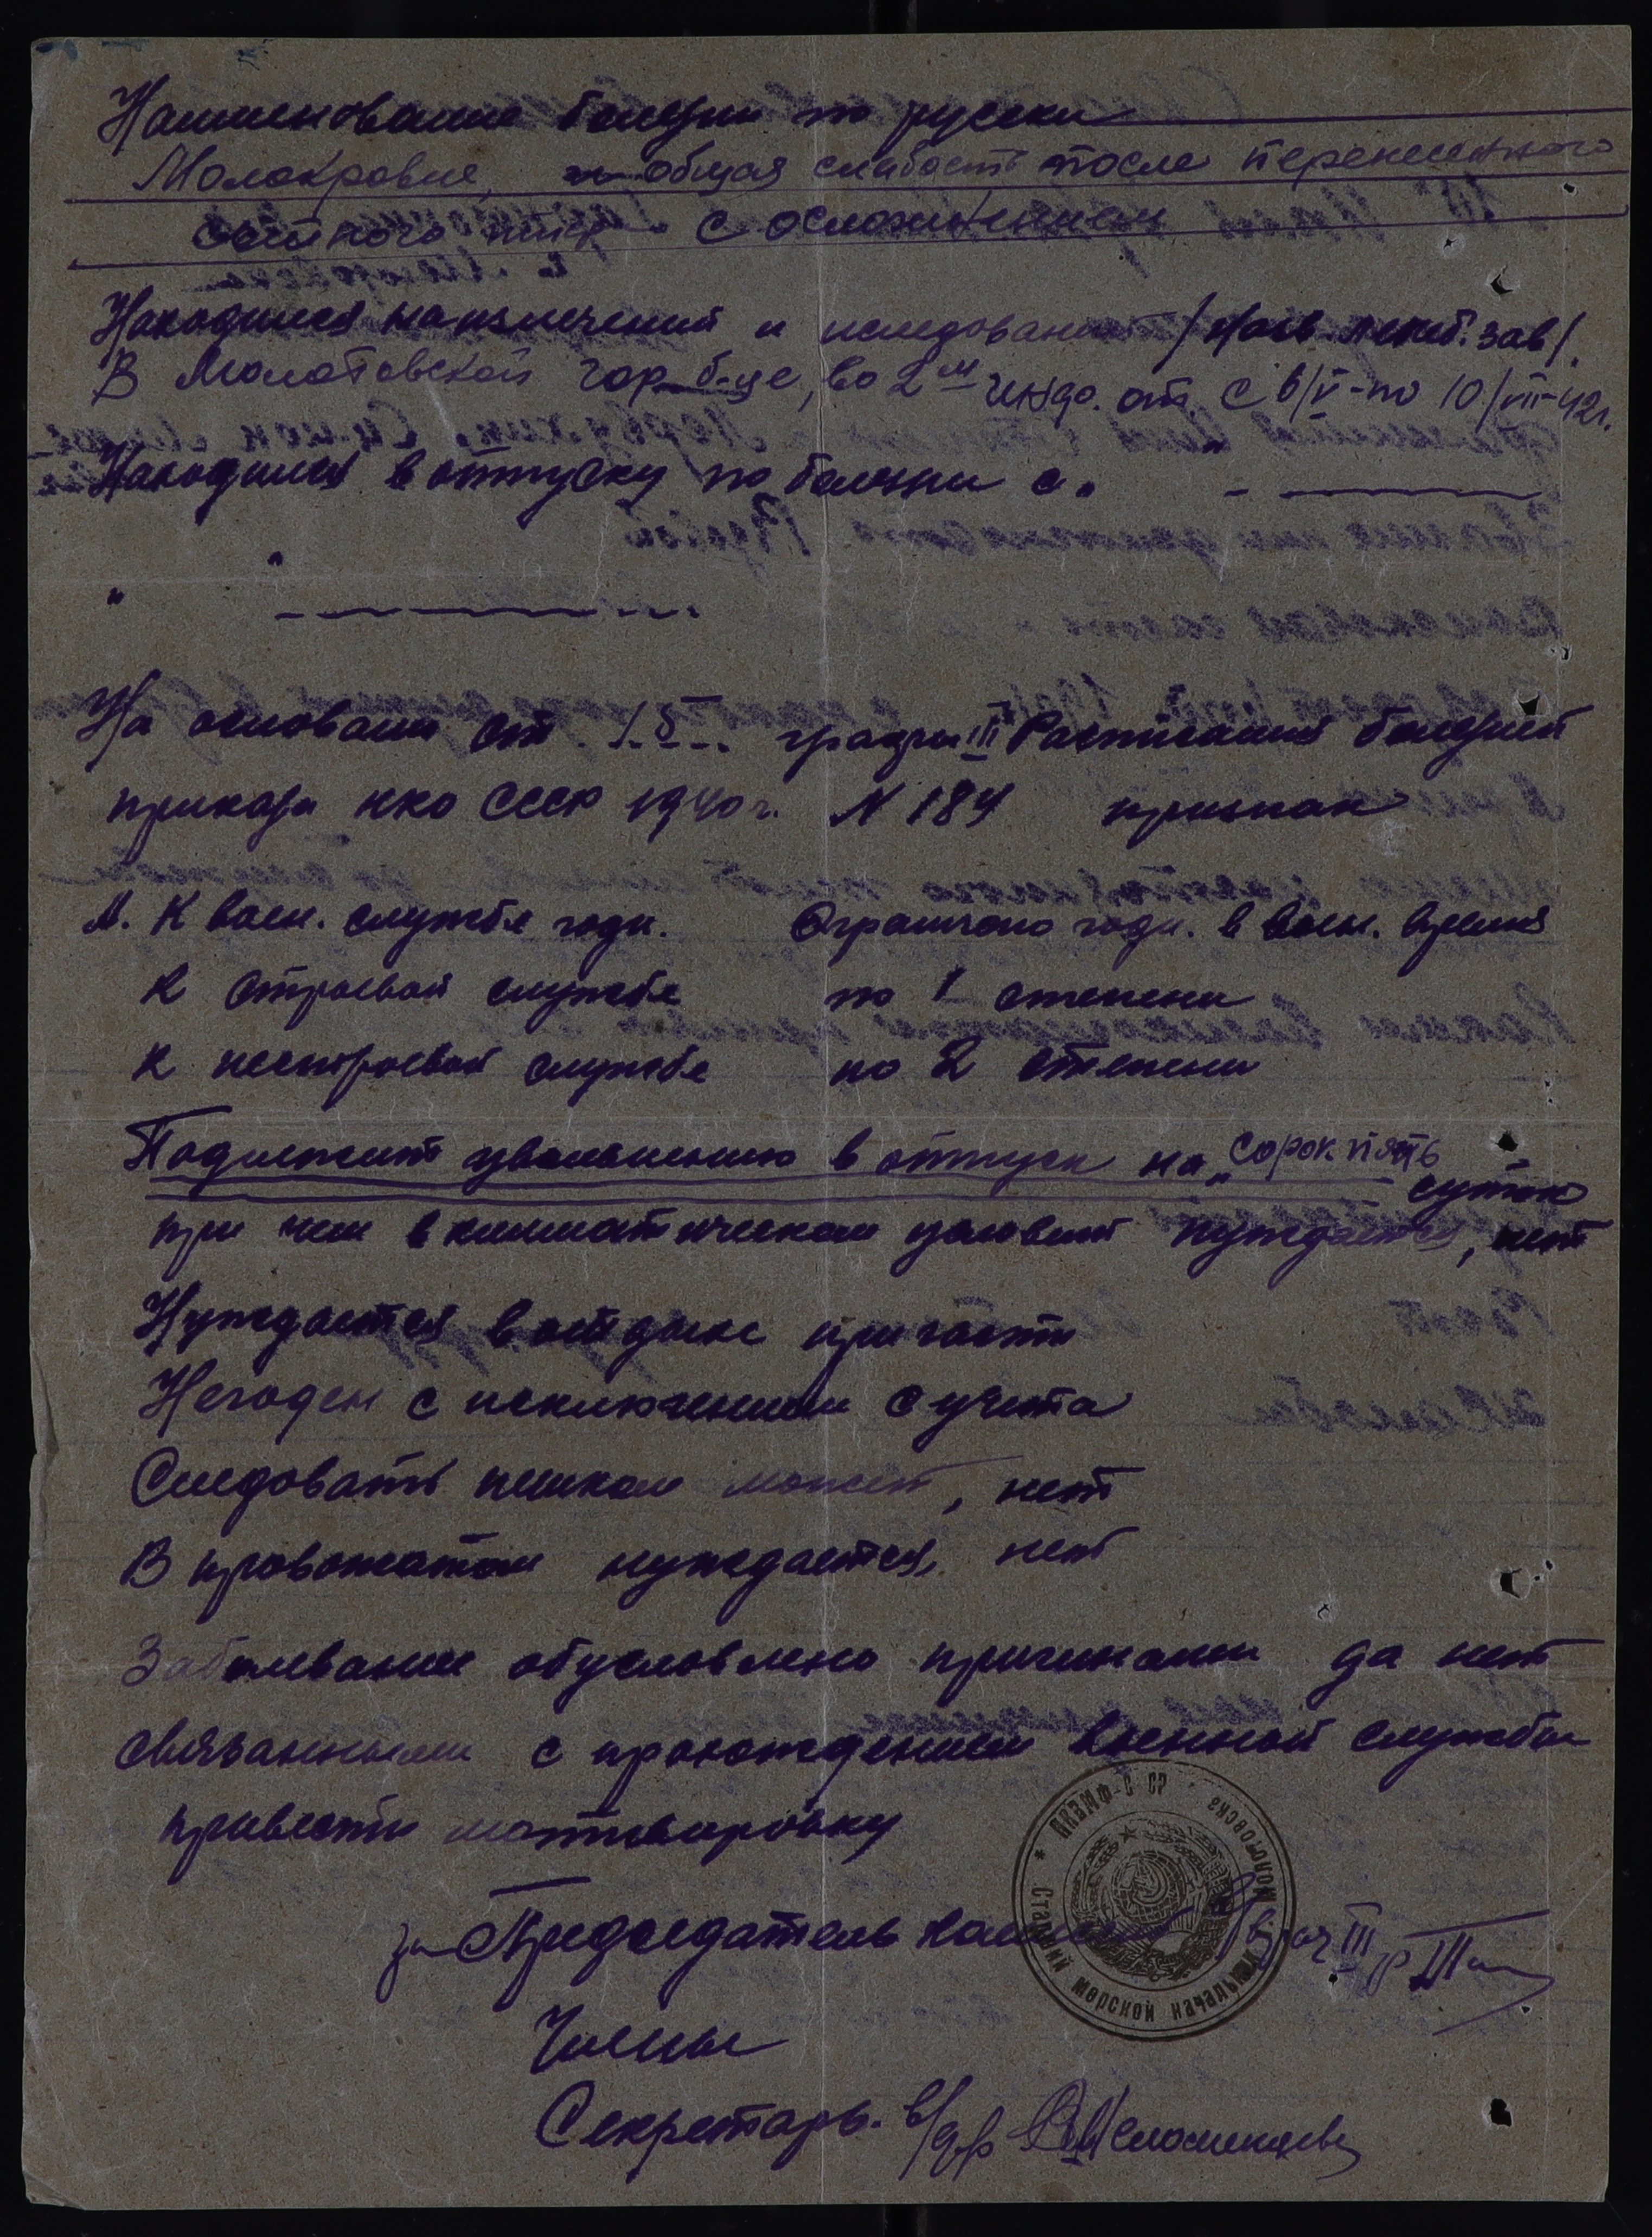 Наименование болезни по русски
Молокровие, общая слабость после перенесенного
сыпного тифа с осложнением
Находился на излечений и иследований / наз. лечеб. зав/.
В Молотовской гор. б-це, во 2м инф. от. с 6/V-по 10/VII-42г.
Находился в отпуску по болезни с "
" "
На основани ст. 15 графы III Расписания болезней
приказа НКО СССР 1940 г. N 184 признан
А. К воен. службе годн. Ограничено годн. в воен. время
К строевой службе по 1 степени
К нестроевой службе по 2 степени
Подлежит увольнению в отпуск на "сорок пять
суток
при чем в климатическом условий нуждается, нет
Нуждается в отдыхе при части
Негоден с исключением с учета
Следовать пешком может, нет
В провожатом нуждается, нет
Заболевание обусловлено причинами да нет
связанными с прохождением военной службы
привести мотивировку
за Председатель комиссии Врач III р
Члены
Секретарь. в/
Старший морской начальник Молотовска